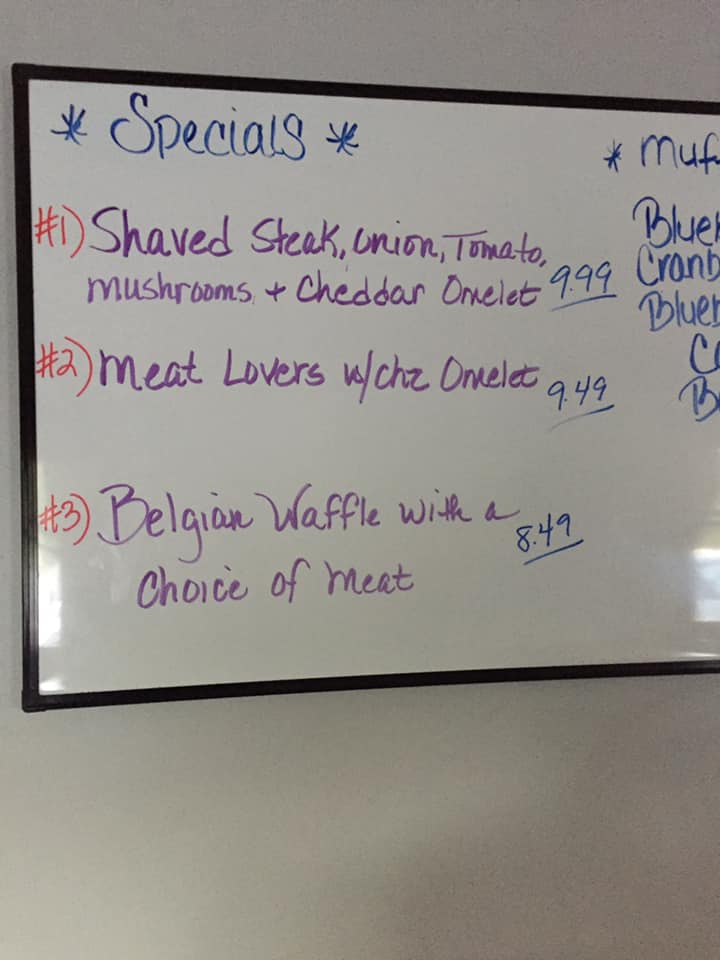 * Specials *
#1) Shaved Steak, Onion, Tomato,
mushrooms + Cheddar Omelet 9.99
#2) meat Lovers w/chz Omelet 9.49
#3) Belgian Waffle with a 8.49
Choice of meat
*